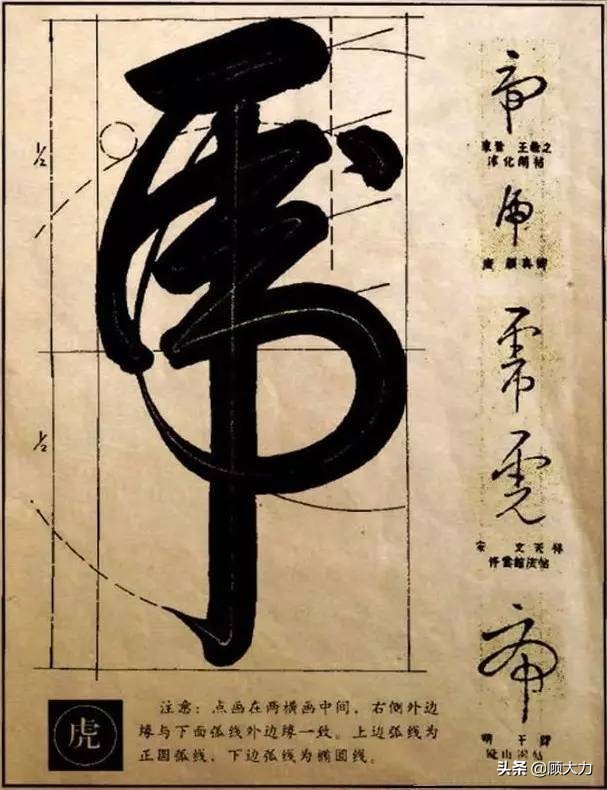 虎
1/2
1/2
东晋 王羲之
淳化阁帖
唐 颜真卿
宋 文天祥
停雲館法帖
明 王铎
注意：点画在两横画中间，右侧外边
缘与下面弧线外边缘一致。上边弧线为
正圆弧线，下边弧线为椭圆线。
虎
头条 @顾大力